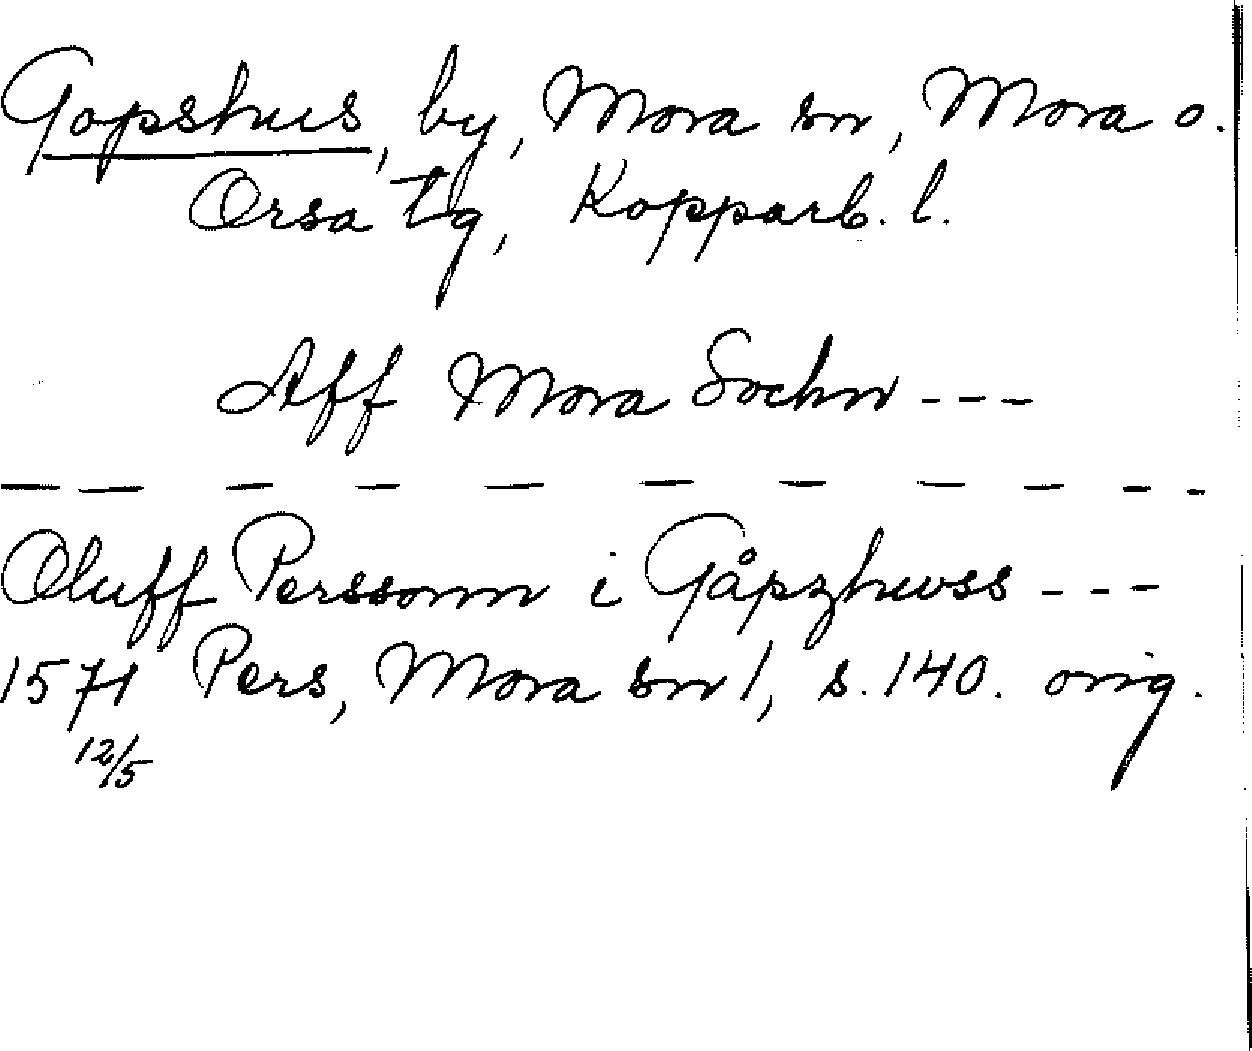 Gopshus, by, Mora sn, Mora o.
Orsa tg, Kopparb. l.
Aff Mora Sochn ---
— — — — — — — — — - -
Oluff Perssonn i Gåpzhwss ---
1571 Pers, Mora sn 1, s. 140. orig.
12/5